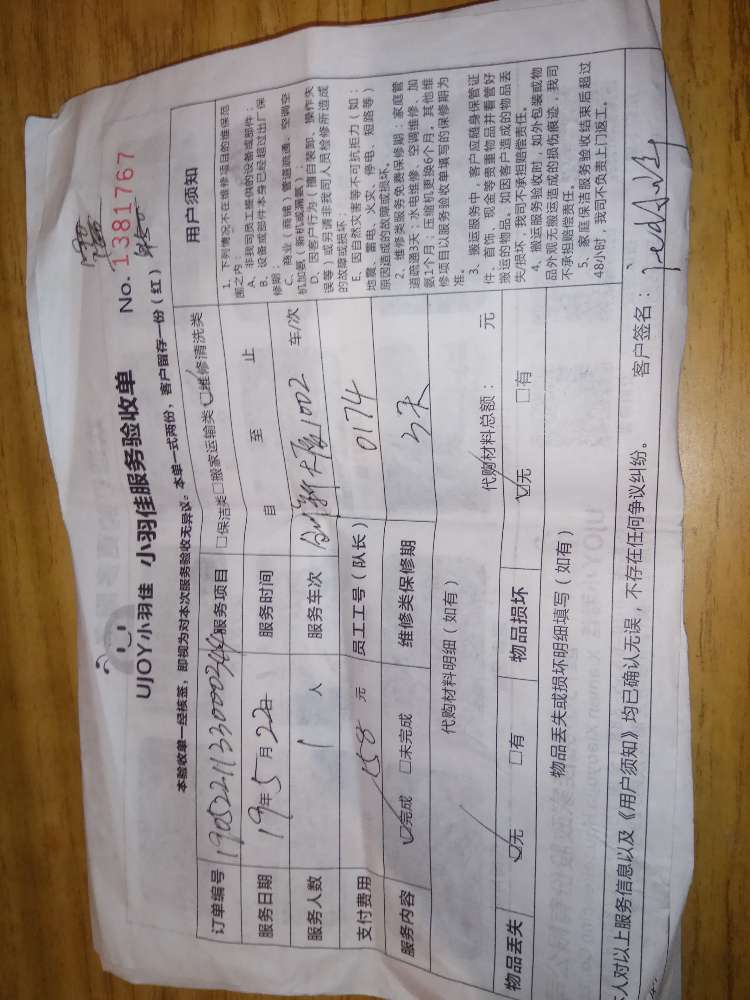 No. 1381767
UJOY小羽佳 小羽佳服务验收单
本验收单一经核签，即视为对本次服务验收无异议。本单一式两份，客户留存一份（红）
订单编号 服务项目 □保洁类 □搬家运输类 ☑维修清洗类
服务日期 19年5月22日 服务时间 自 至 止
服务人数 1 人 服务车次 1002 车/次
支付费用 158 元 员工工号（队长） 0174
服务内容 ☑完成 □未完成 维修类保修期 3天
代购材料明细（如有）
代购材料总额： 元
物品丢失 ☑无 □有 物品损坏 ☑无 □有
物品丢失或损坏明细填写（如有）
用户须知
1. 下列情况不在维修项目的维保范
围之内：
A、非我司员工提供的设备或部件；
B、设备或部件本身已经超过出厂保
修期；
C、商业（商铺）管道疏通、空调空
机加氨（新机或漏氨）；
D、因客户行为（擅自装卸、操作失
误等）或另请非我司人员检修所造成
的故障或损坏；
E、因自然灾害等不可抗拒力（如：
地震、雷电、火灾、停电、短路等）
原因造成的故障或损坏。
2. 维修类服务免费保修期：家庭管
道疏通3天；水电维修、空调维修、加
氨1个月；压缩机更换6个月，其他维
修项目以服务验收单填写的保修期为
准。
3. 搬运服务中，客户应随身保管证
件、首饰、现金等贵重物品并看管好
搬运的物品。如因客户造成的物品丢
失/损坏，我司不承担赔偿责任。
4. 搬运服务验收时，如外包装或物
品外观无搬运造成的损伤痕迹，我司
不承担赔偿责任。
5. 家庭保洁服务验收结束后超过
48小时，我司不负责上门返工。
人对以上服务信息以及《用户须知》均已确认无误，不存在任何争议纠纷。 客户签名：